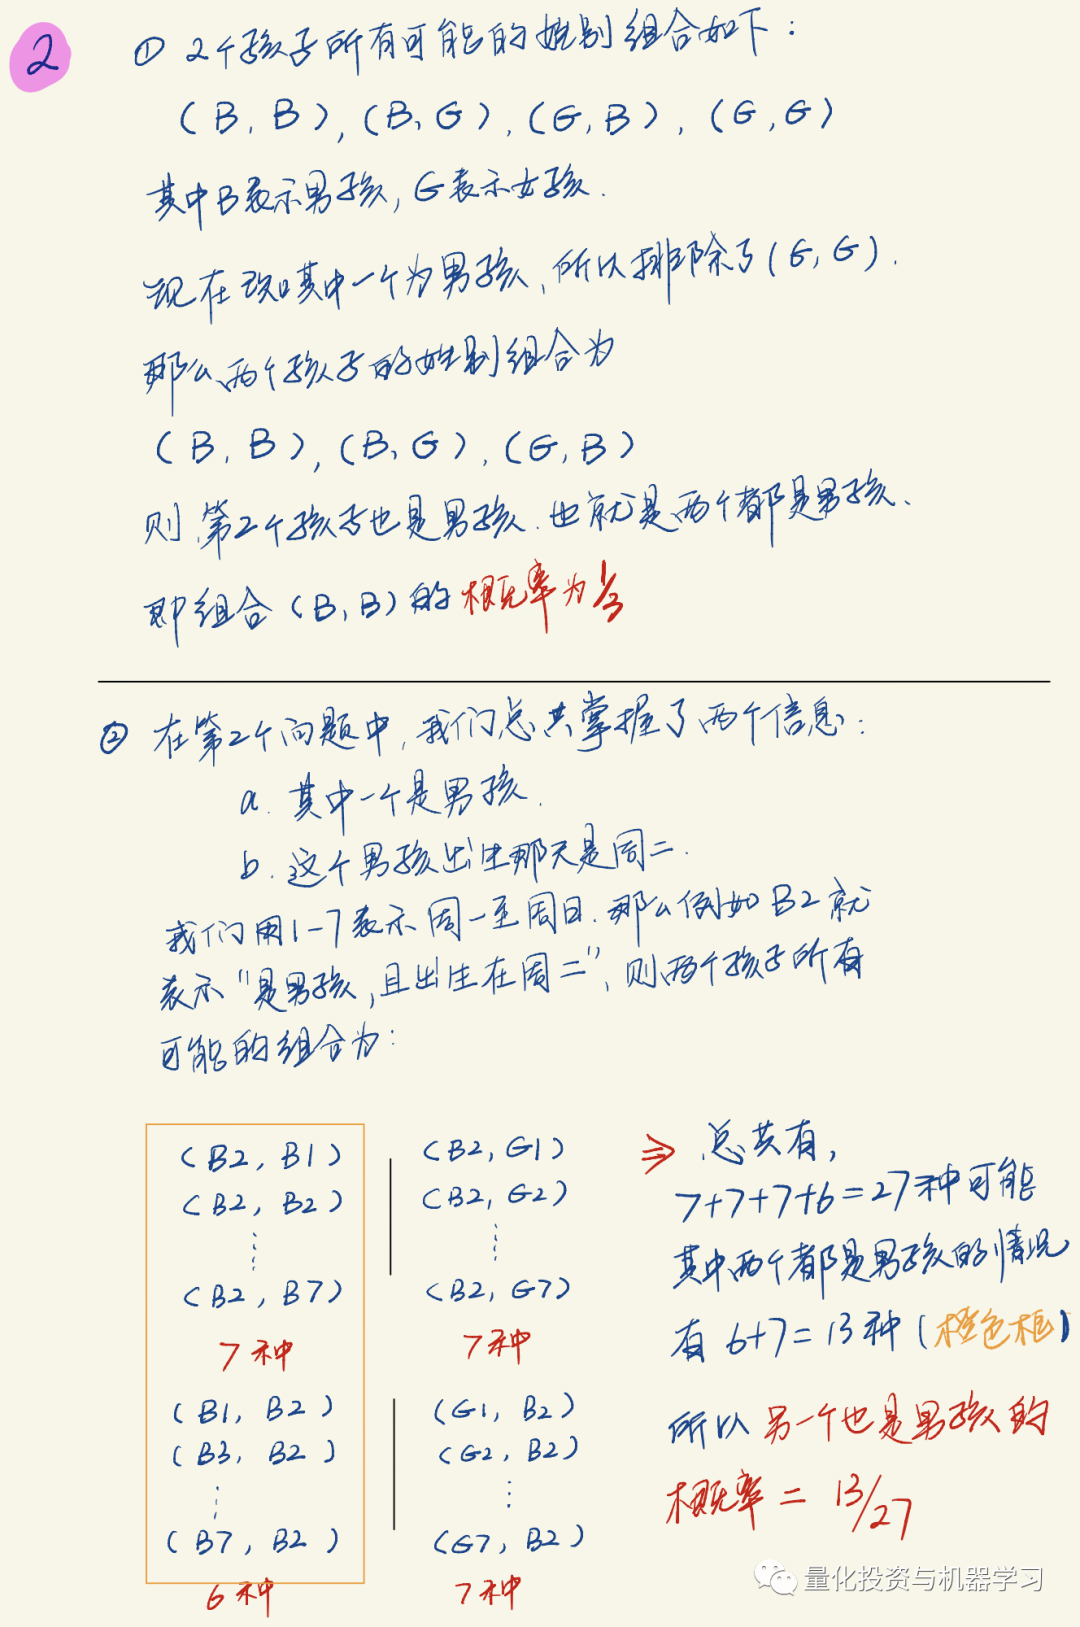 2
① 2个孩子所有可能的性别组合如下：
(B, B), (B, G), (G, B), (G, G)
其中B表示男孩, G表示女孩.
现在已知其中一个为男孩, 所以排除了(G, G).
那么两个孩子的性别组合为
(B, B), (B, G), (G, B)
则第2个孩子也是男孩. 也就是两个都是男孩、
即组合(B, B)的概率为1/3
② 在第2个问题中, 我们总共掌握了两个信息：
a. 其中一个是男孩.
b. 这个男孩出生那天是周二.
我们用1-7表示周一至周日. 那么例如B2就
表示"是男孩, 且出生在周二", 则两个孩子所有
可能的组合为：
(B2, B1)
(B2, B2)
⋮
(B2, B7)
7种
(B2, G1)
(B2, G2)
⋮
(B2, G7)
7种
(B1, B2)
(B3, B2)
⋮
(B7, B2)
6种
(G1, B2)
(G2, B2)
⋮
(G7, B2)
7种
⇒ 总共有,
7+7+7+6=27种可能
其中两个都是男孩的情况
有 6+7=13种 (橙色框)
所以另一个也是男孩的
概率 = 13/27
量化投资与机器学习